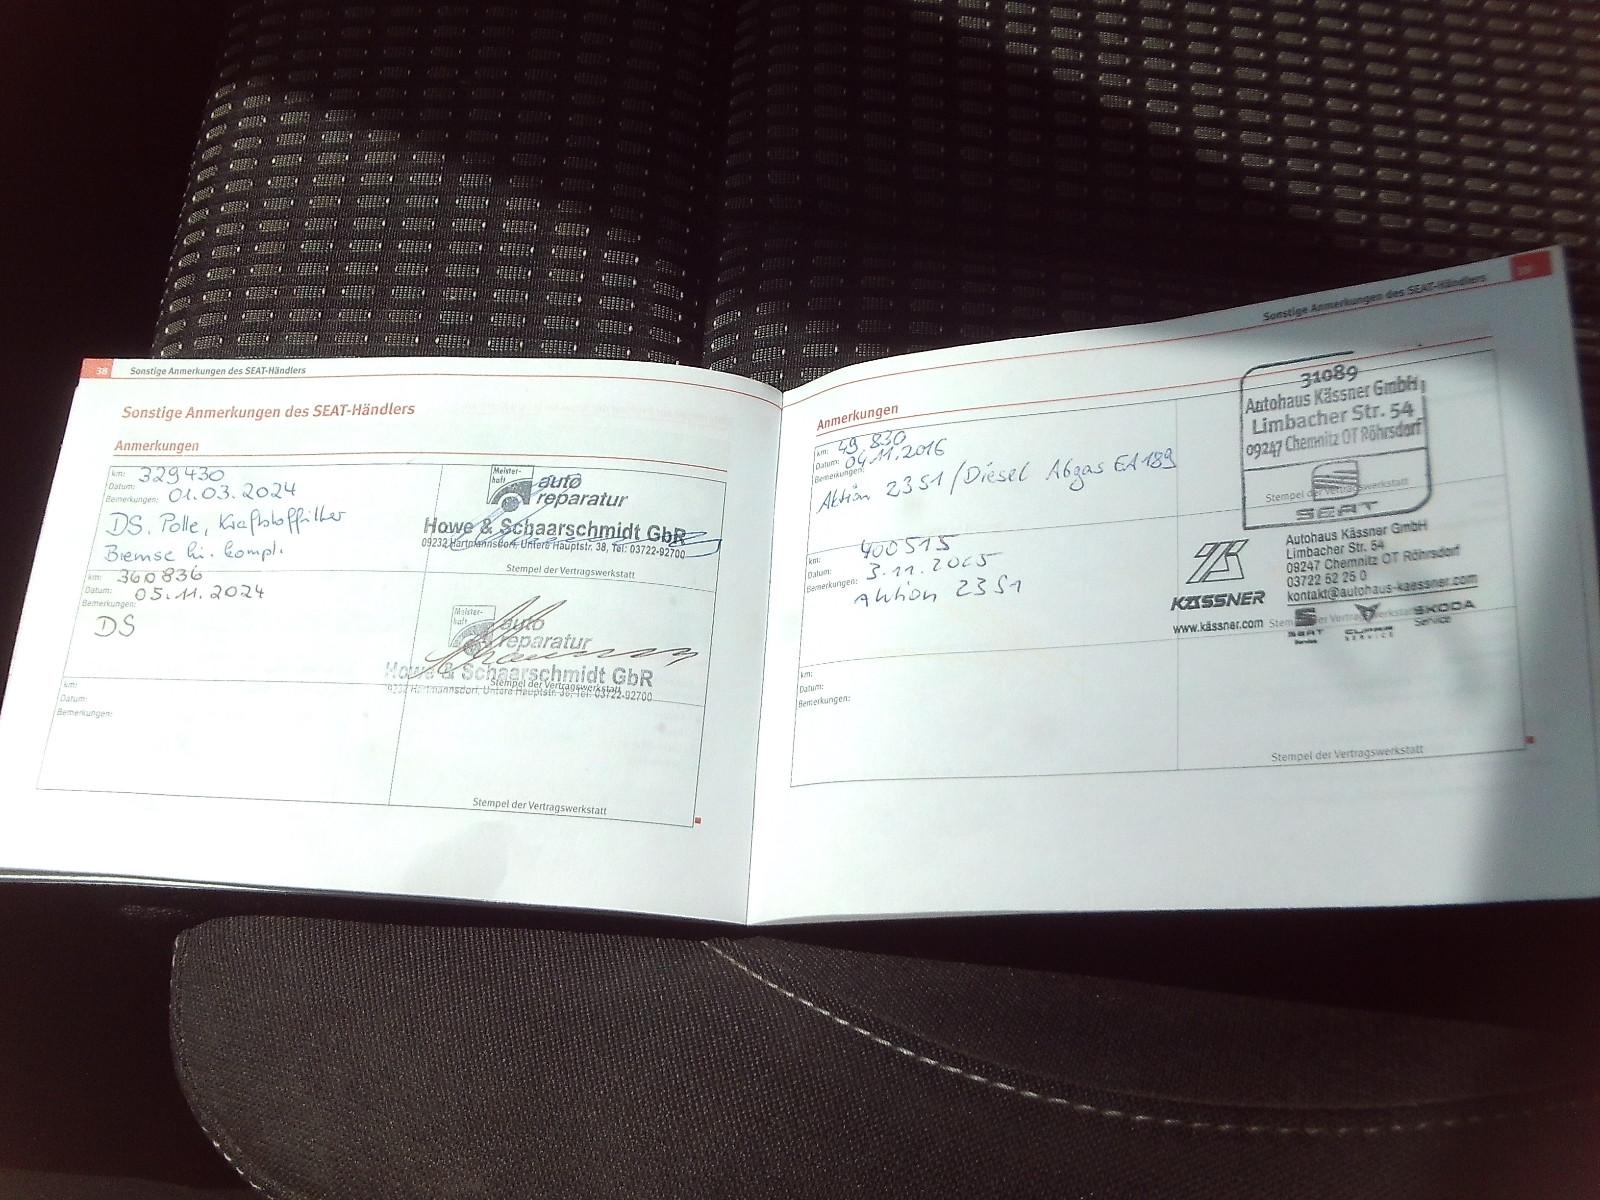 38 Sonstige Anmerkungen des SEAT-Händlers
Sonstige Anmerkungen des SEAT-Händlers
Anmerkungen
km: 329430
Datum: 01.03.2024
Bemerkungen:
DS. Polle, Kraftstofffilter
Bremse hi. kompl.
Meister-
haft
auto
reparatur
Howe & Schaarschmidt GbR
09232 Hartmannsdorf, Untere Hauptstr. 38, Tel: 03722-92700
Stempel der Vertragswerkstatt
km: 360836
Datum: 05.11.2024
Bemerkungen:
DS
Meister-
haft
auto
reparatur
Howe & Schaarschmidt GbR
Stempel der Vertragswerkstatt
9232 Hartmannsdorf, Untere Hauptstr. 38, Tel: 03722-92700
km:
Datum:
Bemerkungen:
Stempel der Vertragswerkstatt
Sonstige Anmerkungen des SEAT-Händlers
Anmerkungen
km: 49 830
Datum: 04.11.2016
Bemerkungen:
Aktion 23S1/Diesel Abgas EA189
31089
Autohaus Kässner GmbH
Limbacher Str. 54
09247 Chemnitz OT Röhrsdorf
Stempel der Vertragswerkstatt
SEAT
km: 400515
Datum: 3.11.2025
Bemerkungen:
Aktion 23S1
KÄSSNER
www.kässner.com
Autohaus Kässner GmbH
Limbacher Str. 54
09247 Chemnitz OT Röhrsdorf
03722 52 25 0
kontakt@autohaus-kaessner.com
Stempel der Vertragswerkstatt
SEAT
Service
CUPRA
SERVICE
SKODA
Service
km:
Datum:
Bemerkungen:
Stempel der Vertragswerkstatt